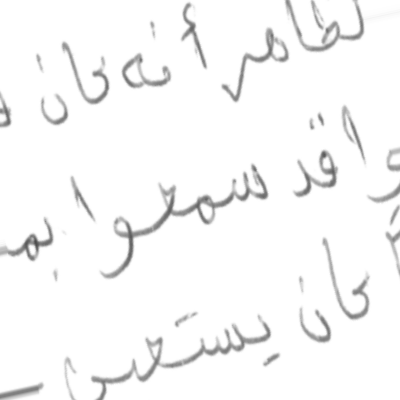 لظاهر أنه كان
وا قد سمعوا بم
كان يستعين